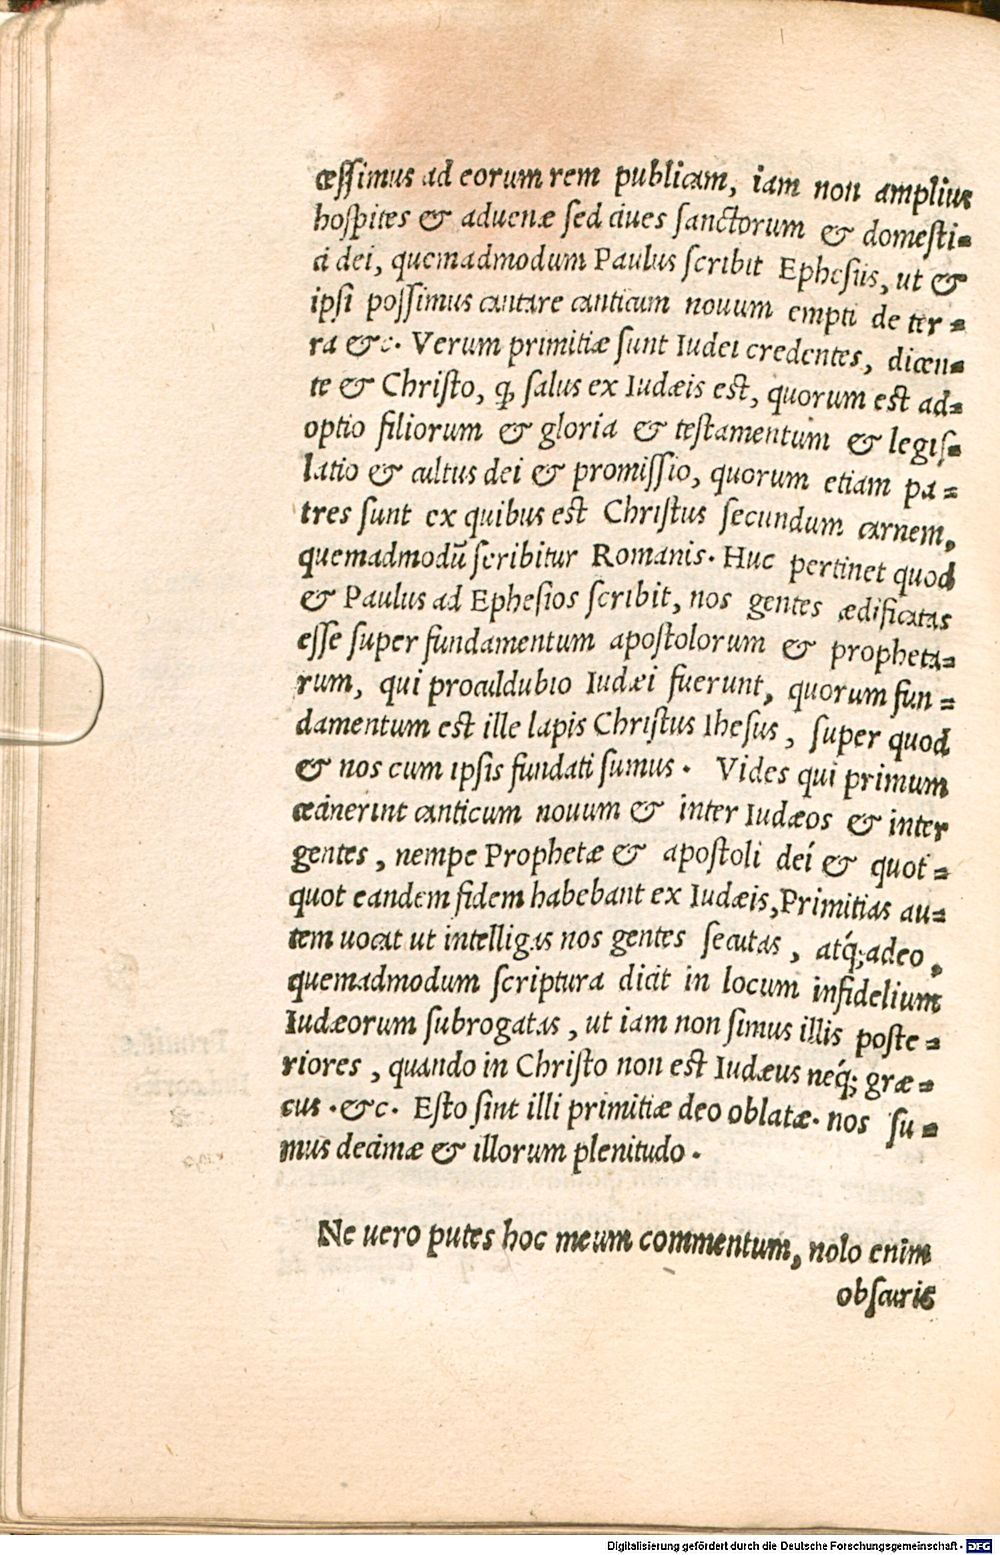 cessimus ad eorum rem publicam, iam non amplius
hospites & aduenæ sed ciues sanctorum & domesti=
ci dei, quemadmodum Paulus scribit Ephesiis, ut &
ipsi possimus cantare canticum nouum empti de ter=
ra &c. Verum primitiæ sunt Iudei credentes, dicen=
te & Christo, ꝙ salus ex Iudæis est, quorum est ad=
optio filiorum & gloria & testamentum & legis=
latio & cultus dei & promissio, quorum etiam pa=
tres sunt ex quibus est Christus secundum carnem,
quemadmodũ scribitur Romanis. Huc pertinet quod
& Paulus ad Ephesios scribit, nos gentes ædificatas
esse super fundamentum apostolorum & propheta=
rum, qui proculdubio Iudæi fuerunt, quorum fun=
damentum est ille lapis Christus Ihesus, super quod
& nos cum ipsis fundati sumus. Vides qui primum
cecinerint canticum nouum & inter Iudæos & inter
gentes, nempe Prophetæ & apostoli dei & quot=
quot eandem fidem habebant ex Iudæis, Primitias au=
tem uocat ut intelligas nos gentes secutas, atq́; adeo,
quemadmodum scriptura dicit in locum infidelium
Iudæorum subrogatas, ut iam non simus illis poste=
riores, quando in Christo non est Iudæus neq́; græ=
cus .&c. Esto sint illi primitiæ deo oblatæ. nos su=
mus decimæ & illorum plenitudo.
Ne uero putes hoc meum commentum, nolo enim
obscuris
Digitalisierung gefördert durch die Deutsche Forschungsgemeinschaft - DFG